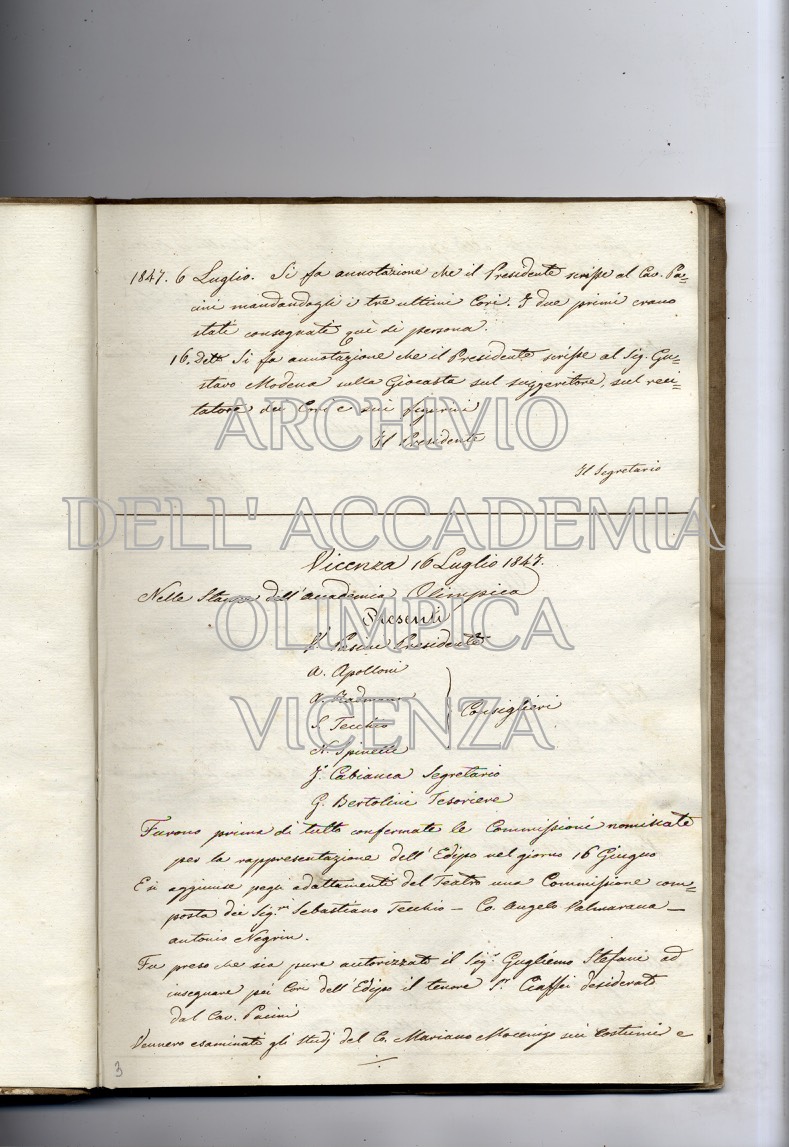 1847. 6 Luglio. Si fa annotazione che il Presidente scrisse al Cav. Pa=
cini mandandogli i tre ultimi Cori. I due primi erano
stati consegnati quì di persona.
16. detto Si fa annotazione che il Presidente scrisse al Sig. Gu=
stavo Modena sulla Giocasta sul suggeritore, sul reci=
tatore dei Cori e sui figurini
ARCHIVIO
Il Presidente
Il Segretario
DELL' ACCADEMIA
Vicenza 16 Luglio 1847.
Nelle Stanze dell'accademia Olimpica
OLIMPICA
Presenti
Pasini Presidente
A. Apolloni
VICENZA
S. Tecchio
Consiglieri
N. Spinelli
J. Cabianca Segretario
G. Bertolini Tesoriere
Furono prima di tutto confermate le Commissioni nominate
per la rappresentazione dell'Edipo nel giorno 16 Giugno
E si aggiunse pegli adattamenti del Teatro una Commissione com=
posta dei Sigri Sebastiano Tecchio — Co. Angelo Valmarana —
Antonio Negrin.
Fu preso che sia pure autorizzato il Sigr Guglielmo Stefani ad
insegnare pei Cori dell'Edipo il tenore Sr Ciaffei desiderato
dal Cav. Pacini
Vennero esaminati gli studj del Co. Mariano Mocenigo sui Costumi e
3